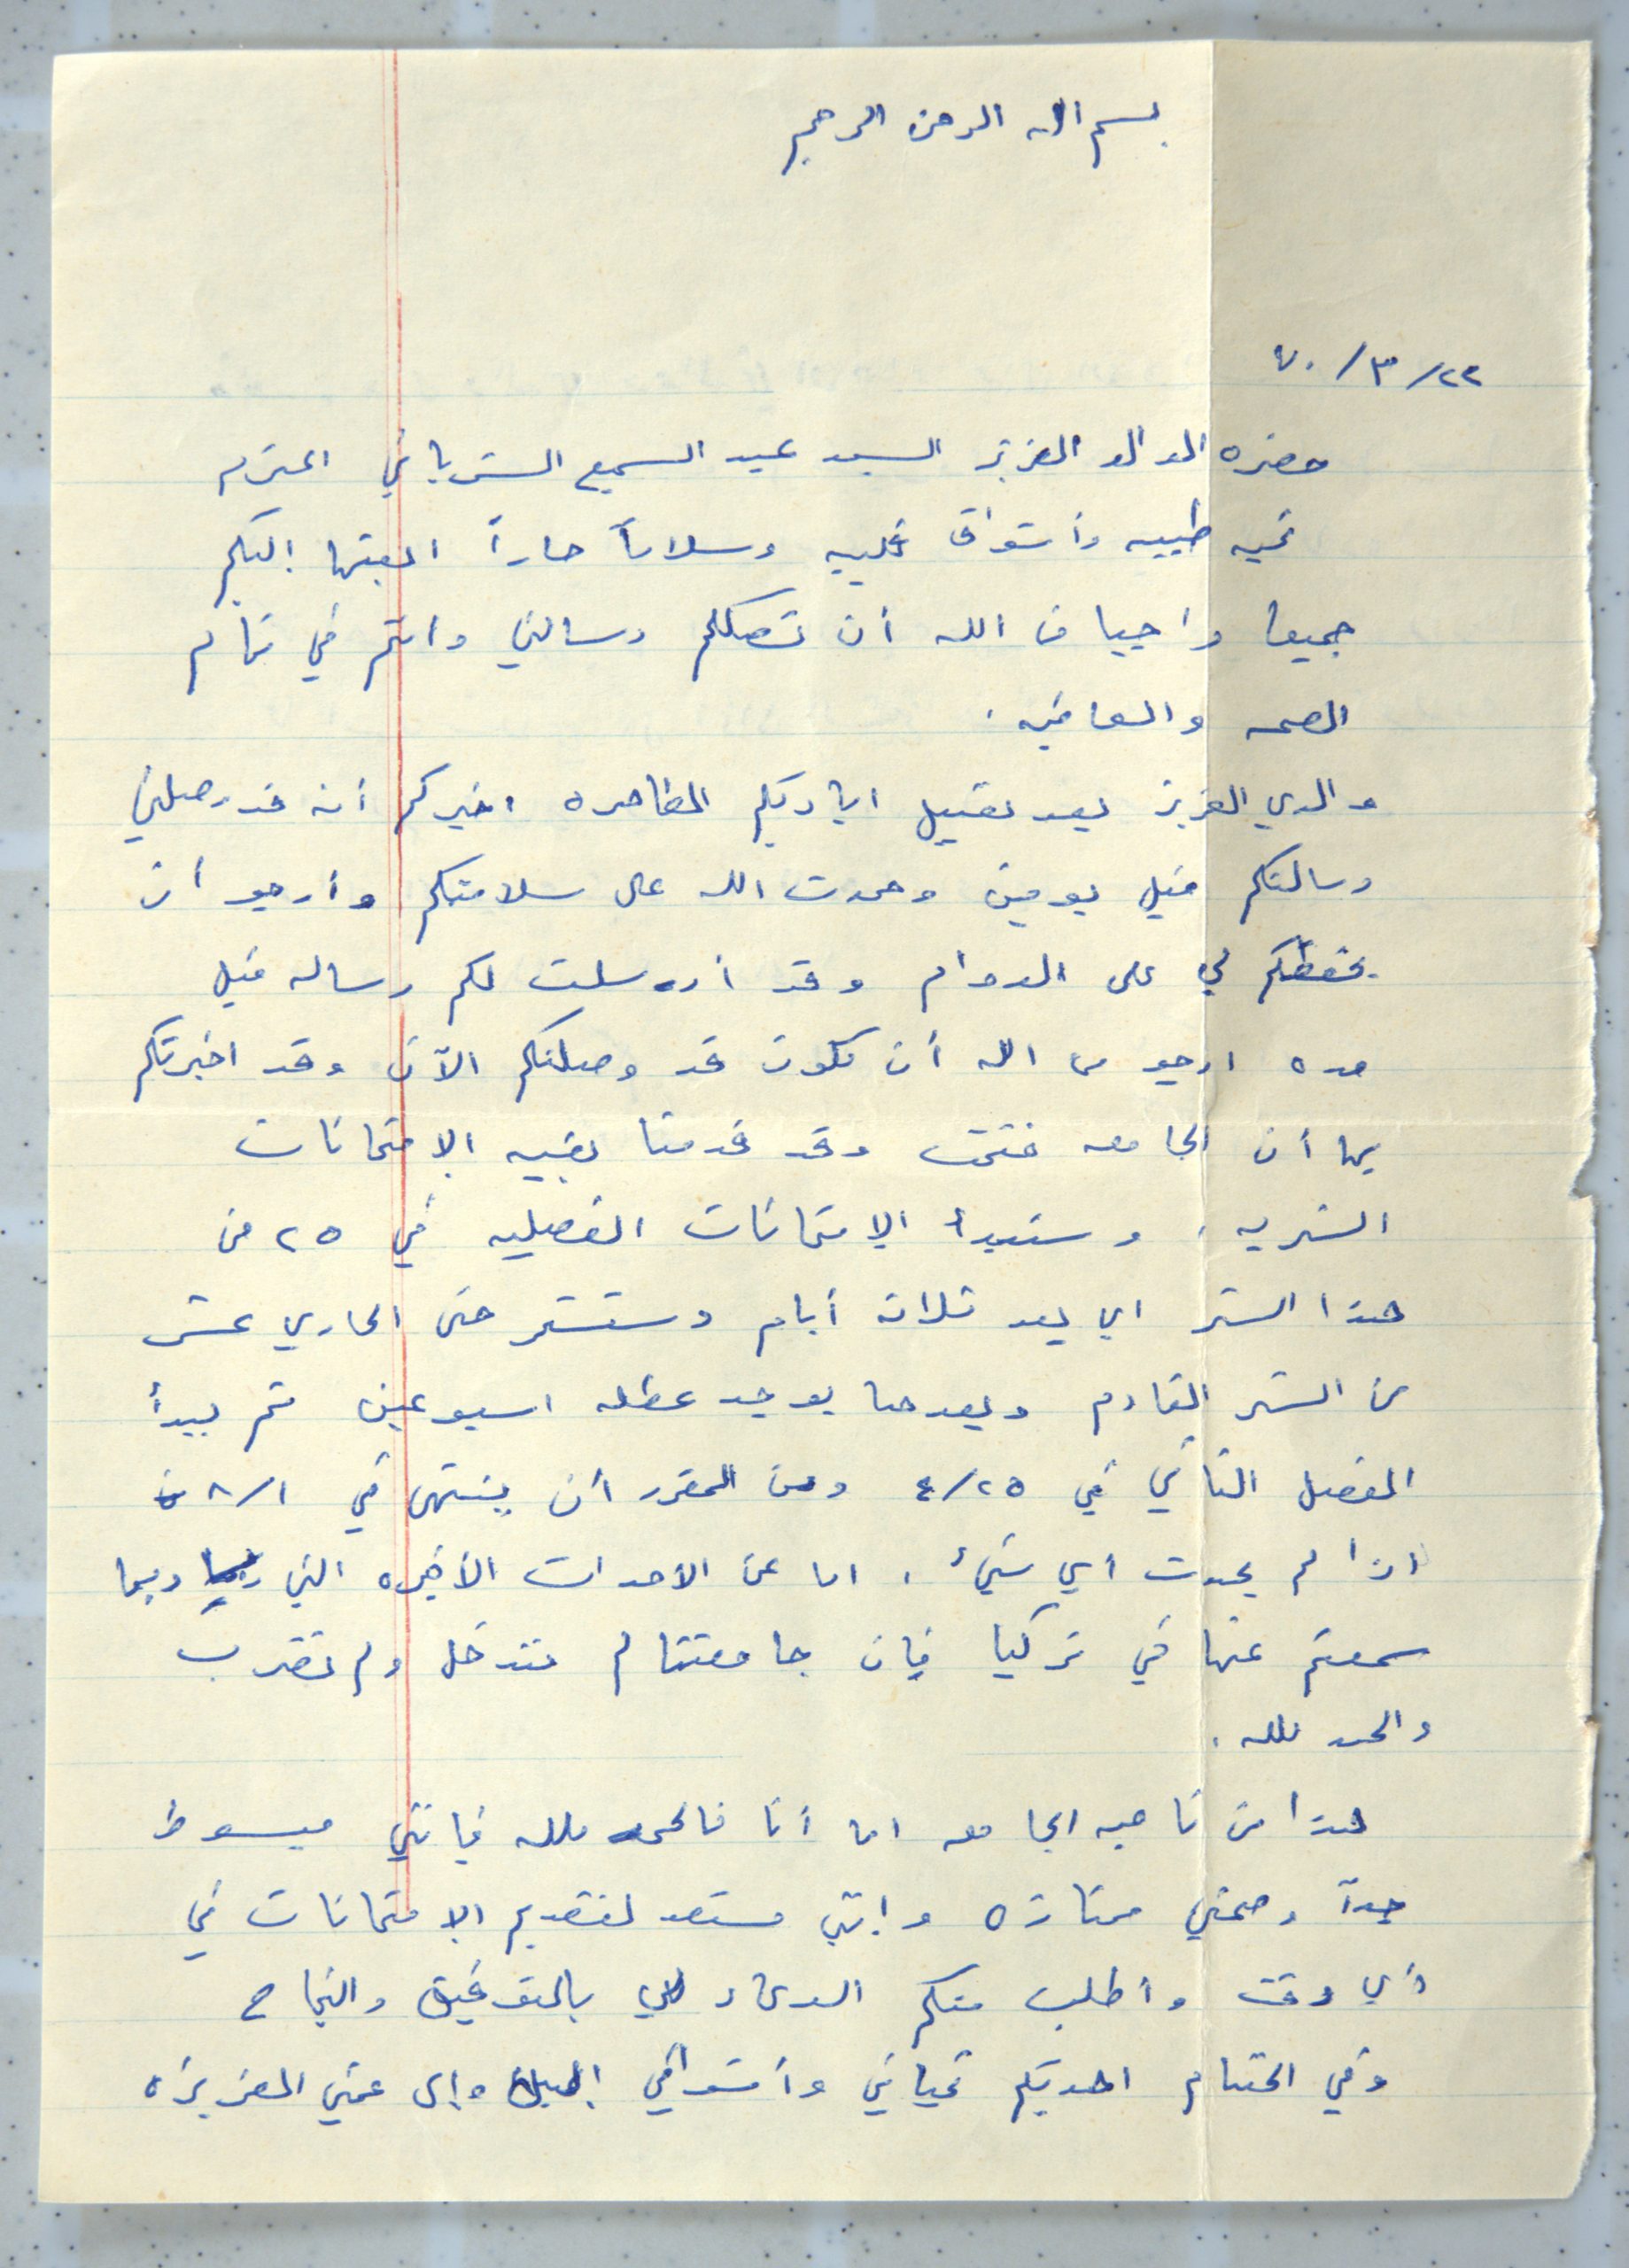 بسم الله الرحمن الرحيم
٢٢/٣/٧٠
حضره الوالد العزيز السيد عبد السميع الشرباتي المحترم
تحيه طيبيه وأشواق قلبيه وسلاماً حاراً ابعثها اليكم
جميعا راجيا من الله أن تصلكم رسالتي وانتم في تمام
الصحه والعافيه .
والدي العزيز بعد تقبيل اياديكم الطاهره اخبركم أنه قد وصلني
رسالتكم قبل يومين وحمدت الله على سلامتكم وأرجو أن
يحفظكم لي على الدوام وقد أرسلت لكم رساله قبل
مده ارجو من الله أن تكون قد وصلتكم الآن وقد اخبرتكم
بها أن الجامعه فتحت وقد قدمنا بقيه الإمتحانات
الشهريه . وستبدأ الإمتحانات الفصليه في ٢٥ من
هذا الشهر اي بعد ثلاثه أيام وستستمر حتى الحادي عشر
من الشهر القادم وبعدها يوجد عطله اسبوعين ثم يبدأ
الفصل الثاني في ٢٥/٤ ومن المقرر أن ينتهي في ١/٨
اذا لم يحدث أي شيء . اما عن الأحداث الأخيره التي ربما
سمعتم عنها في تركيا فإن جامعتنا لم تتدخل ولم تضرب
والحمد لله .
هذا من ناحيه الجامعه اما أنا فالحمد لله فإنني مبسوط
جداً وصحتي ممتازه وإنني مستعد لتقديم الإمتحانات في
أي وقت وأطلب منكم الدعاء لي بالتوفيق والنجاح
وفي الختام اهديكم تحياتي وأشواقي إليك وإلى عمتي العزيزه